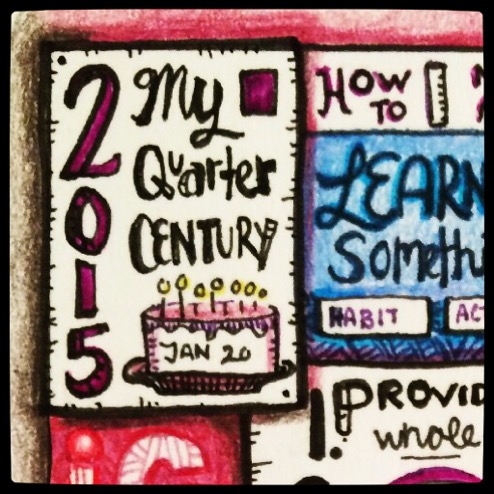 2015
My
Quarter
CENTURY
JAN 20
HOW
TO
LEARN
Somethi
HABIT
AC
!
PROVID
whole